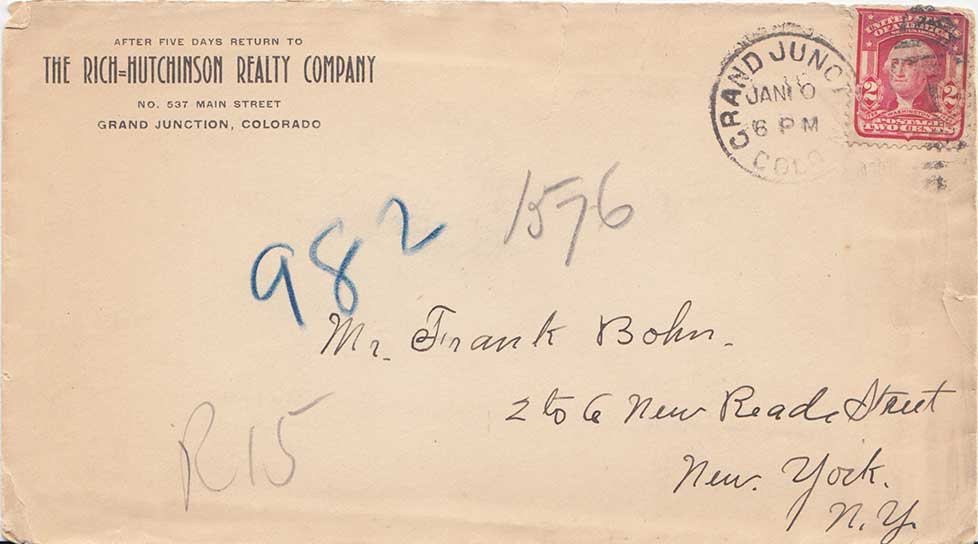 AFTER FIVE DAYS RETURN TO
THE RICH=HUTCHINSON REALTY COMPANY
NO. 537 MAIN STREET
GRAND JUNCTION, COLORADO
GRAND JUNC
JAN 10
6 PM
COLO
UNITED STATES
OF AMERICA
2 2
POSTAGE
TWO CENTS
982
1576
Mr. Frank Bohn.
2 to 6 New Reade Street
New York.
N.Y.
R15